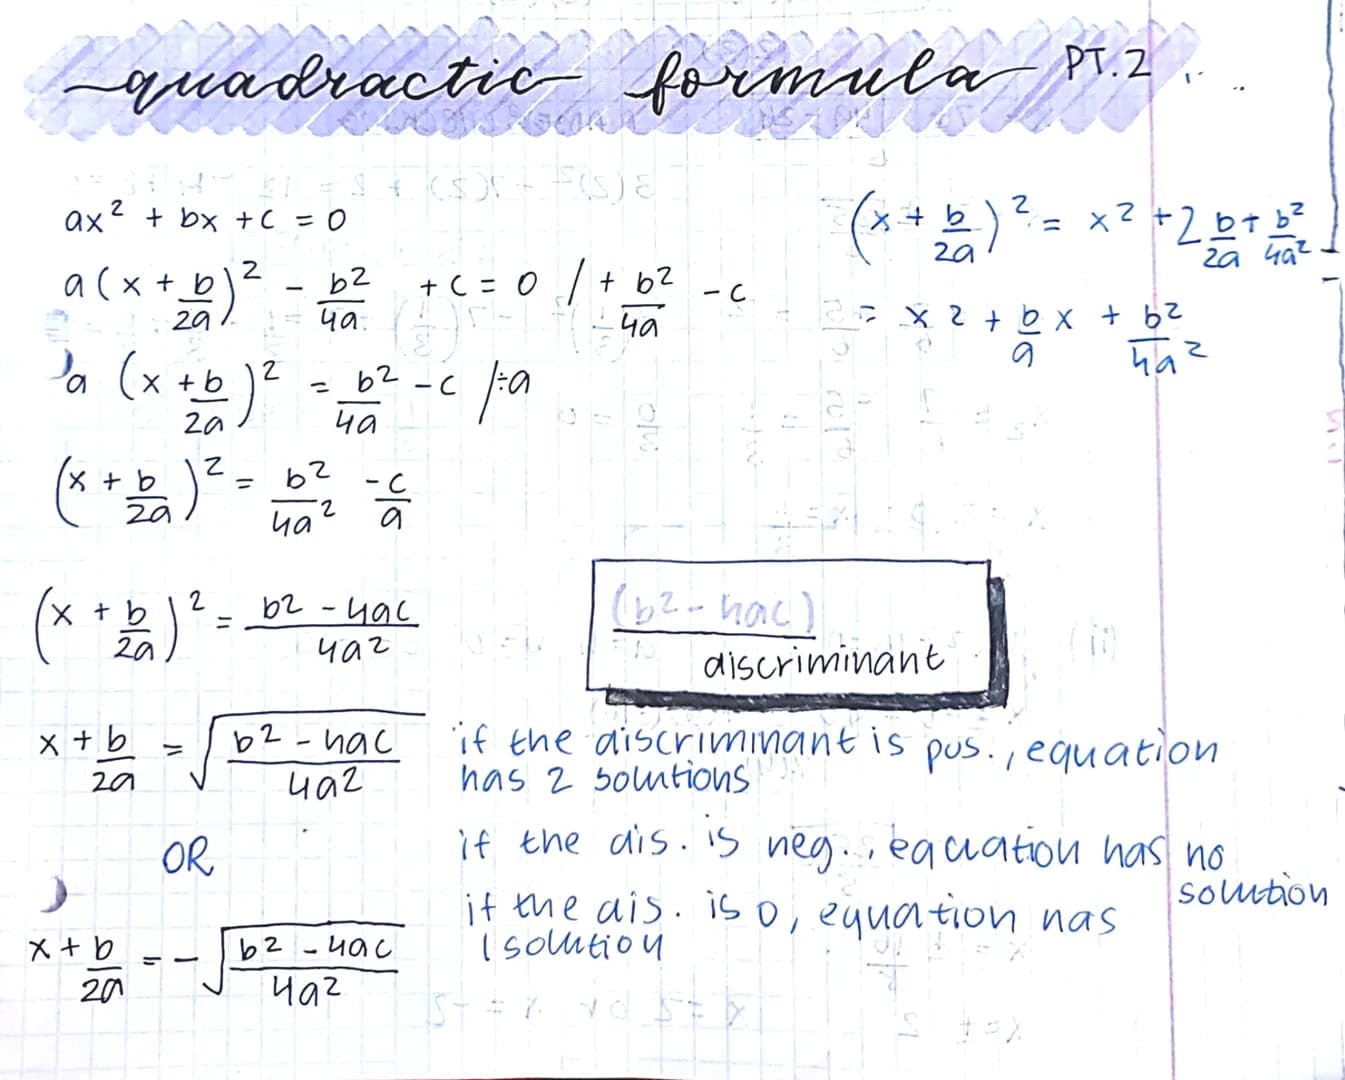 quadractic formula PT.2
ax² + bx + c = 0
a(x + b/2a)² - b²/4a + c = 0 / + b²/4a - c
a (x + b/2a)² = b²/4a - c /÷a
(x + b/2a)² = b²/4a² - c/a
(x + b/2a)² = b² - 4ac/4a²
x + b/2a = √(b² - 4ac/4a²)
OR
x + b/2a = - √(b² - 4ac/4a²)
(x + b/2a)² = x² + 2 b/2a + b²/4a²
= x² + b/a x + b²/4a²
(b² - 4ac)
discriminant
if the discriminant is pos., equation
has 2 solutions
if the dis. is neg., equation has no
solution
if the dis. is 0, equation has
1 solution